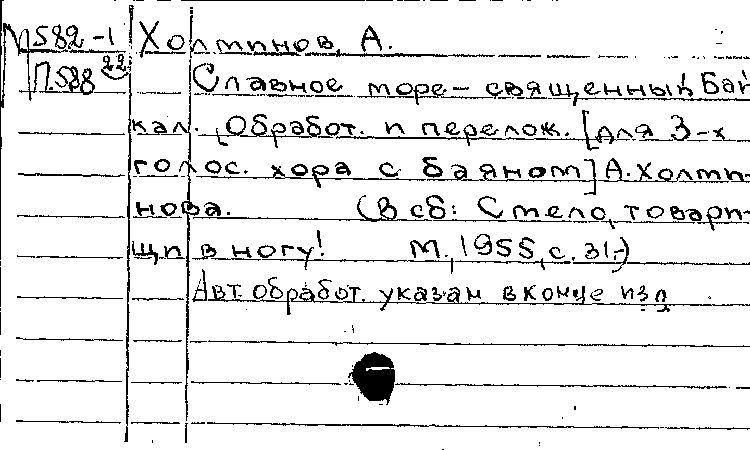 М 582-1 Холминов, А.
П.588 22 Славное море – священный Бай
кал. Обработ. и перелож. [для 3-х
голос. хора с баяном] А. Холми-
нова. (В сб: Смело, товари-
щи в ногу! М., 1955, с. 31-)
Авт. обработ. указан в конце изд